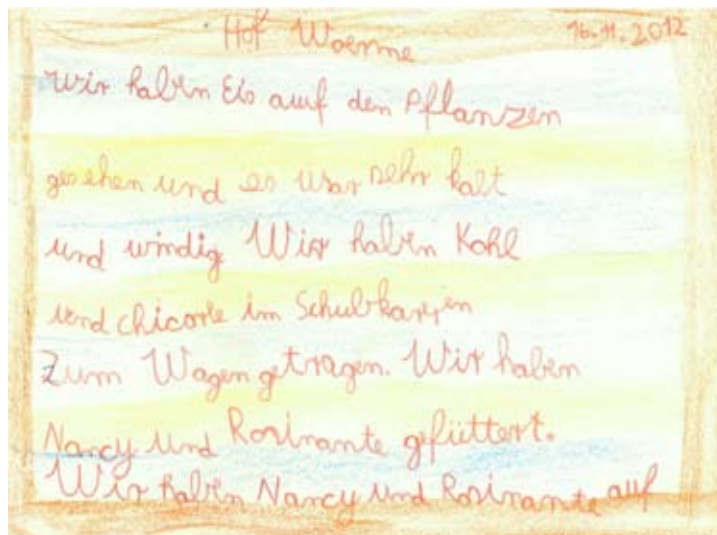 Hof Woerme 16.11.2012
Wir haben Eis auf den Pflanzen
gesehen und es war sehr kalt
und windig Wir haben Kohl
und chicorle im Schubkarren
Zum Wagen getragen. Wir haben
Nancy und Rosinante gefüttert.
Wir haben Nancy und Rosinante auf